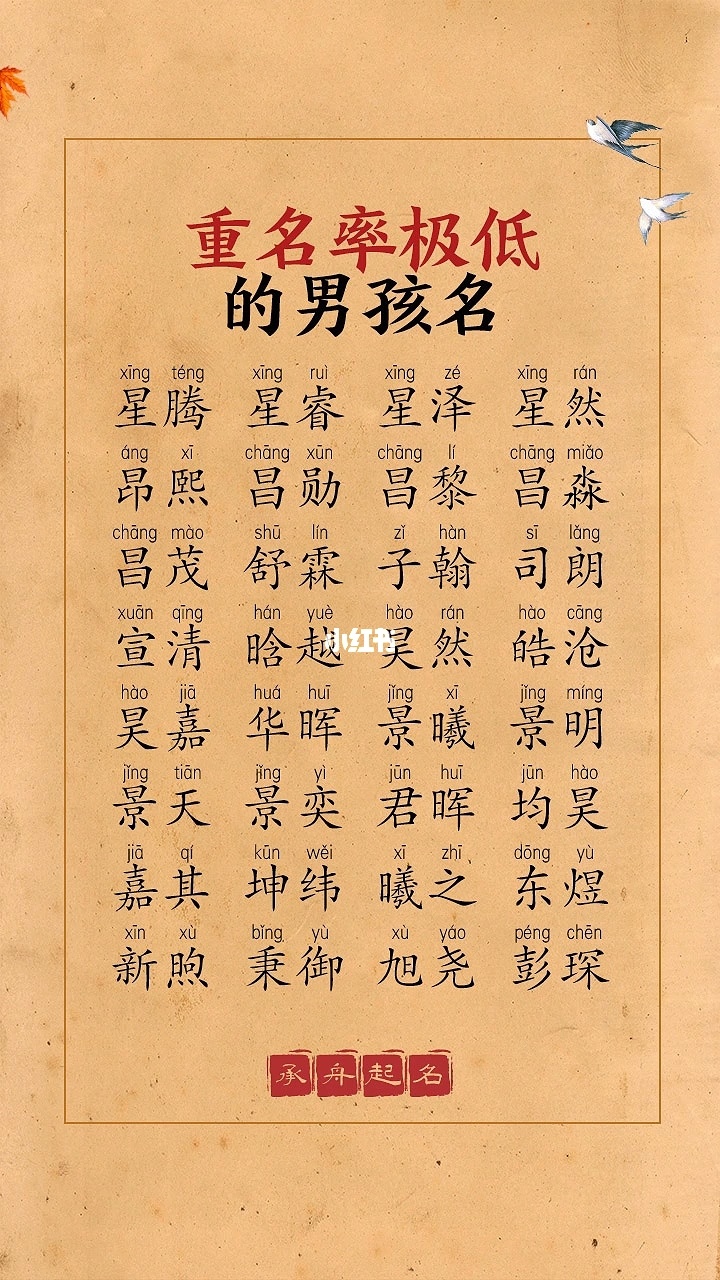 重名率极低
的男孩名
xīng téng xīng ruì xīng zé xīng rán
星腾 星睿 星泽 星然
áng xī chāng xūn chāng lí chāng miǎo
昂熙 昌勋 昌黎 昌淼
chāng mào shū lín zǐ hàn sī lǎng
昌茂 舒霖 子翰 司朗
xuān qīng hán yuè hào rán hào cāng
宣清 晗越 昊然 皓沧
小红书
hào jiā huá huī jǐng xī jǐng míng
昊嘉 华晖 景曦 景明
jǐng tiān jǐng yì jūn huī jūn hào
景天 景奕 君晖 均昊
jiā qí kūn wěi xī zhī dōng yù
嘉其 坤纬 曦之 东煜
xīn xù bǐng yù xù yáo péng chēn
新煦 秉御 旭尧 彭琛
承舟起名